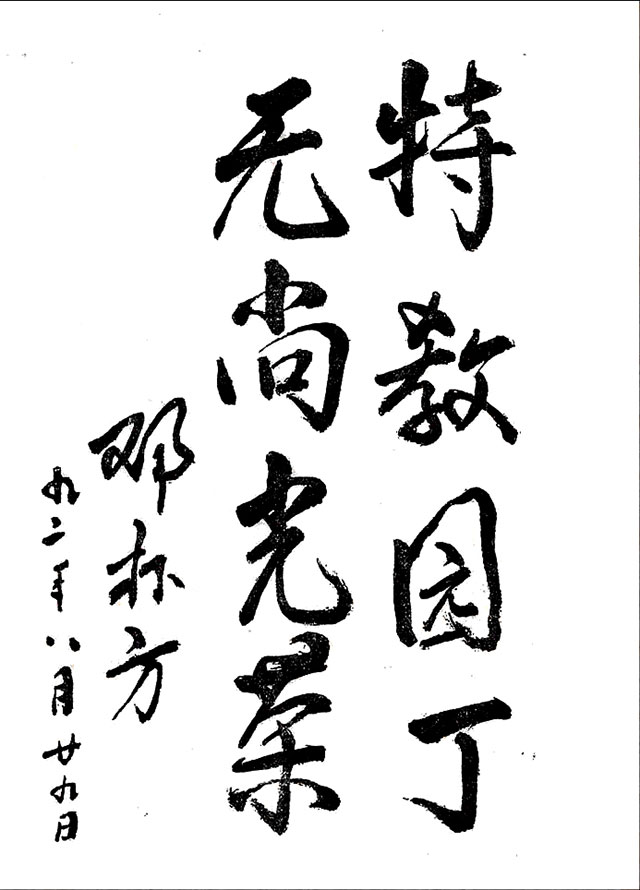 特教园丁
无尚光荣
邓朴方
九二年八月廿九日